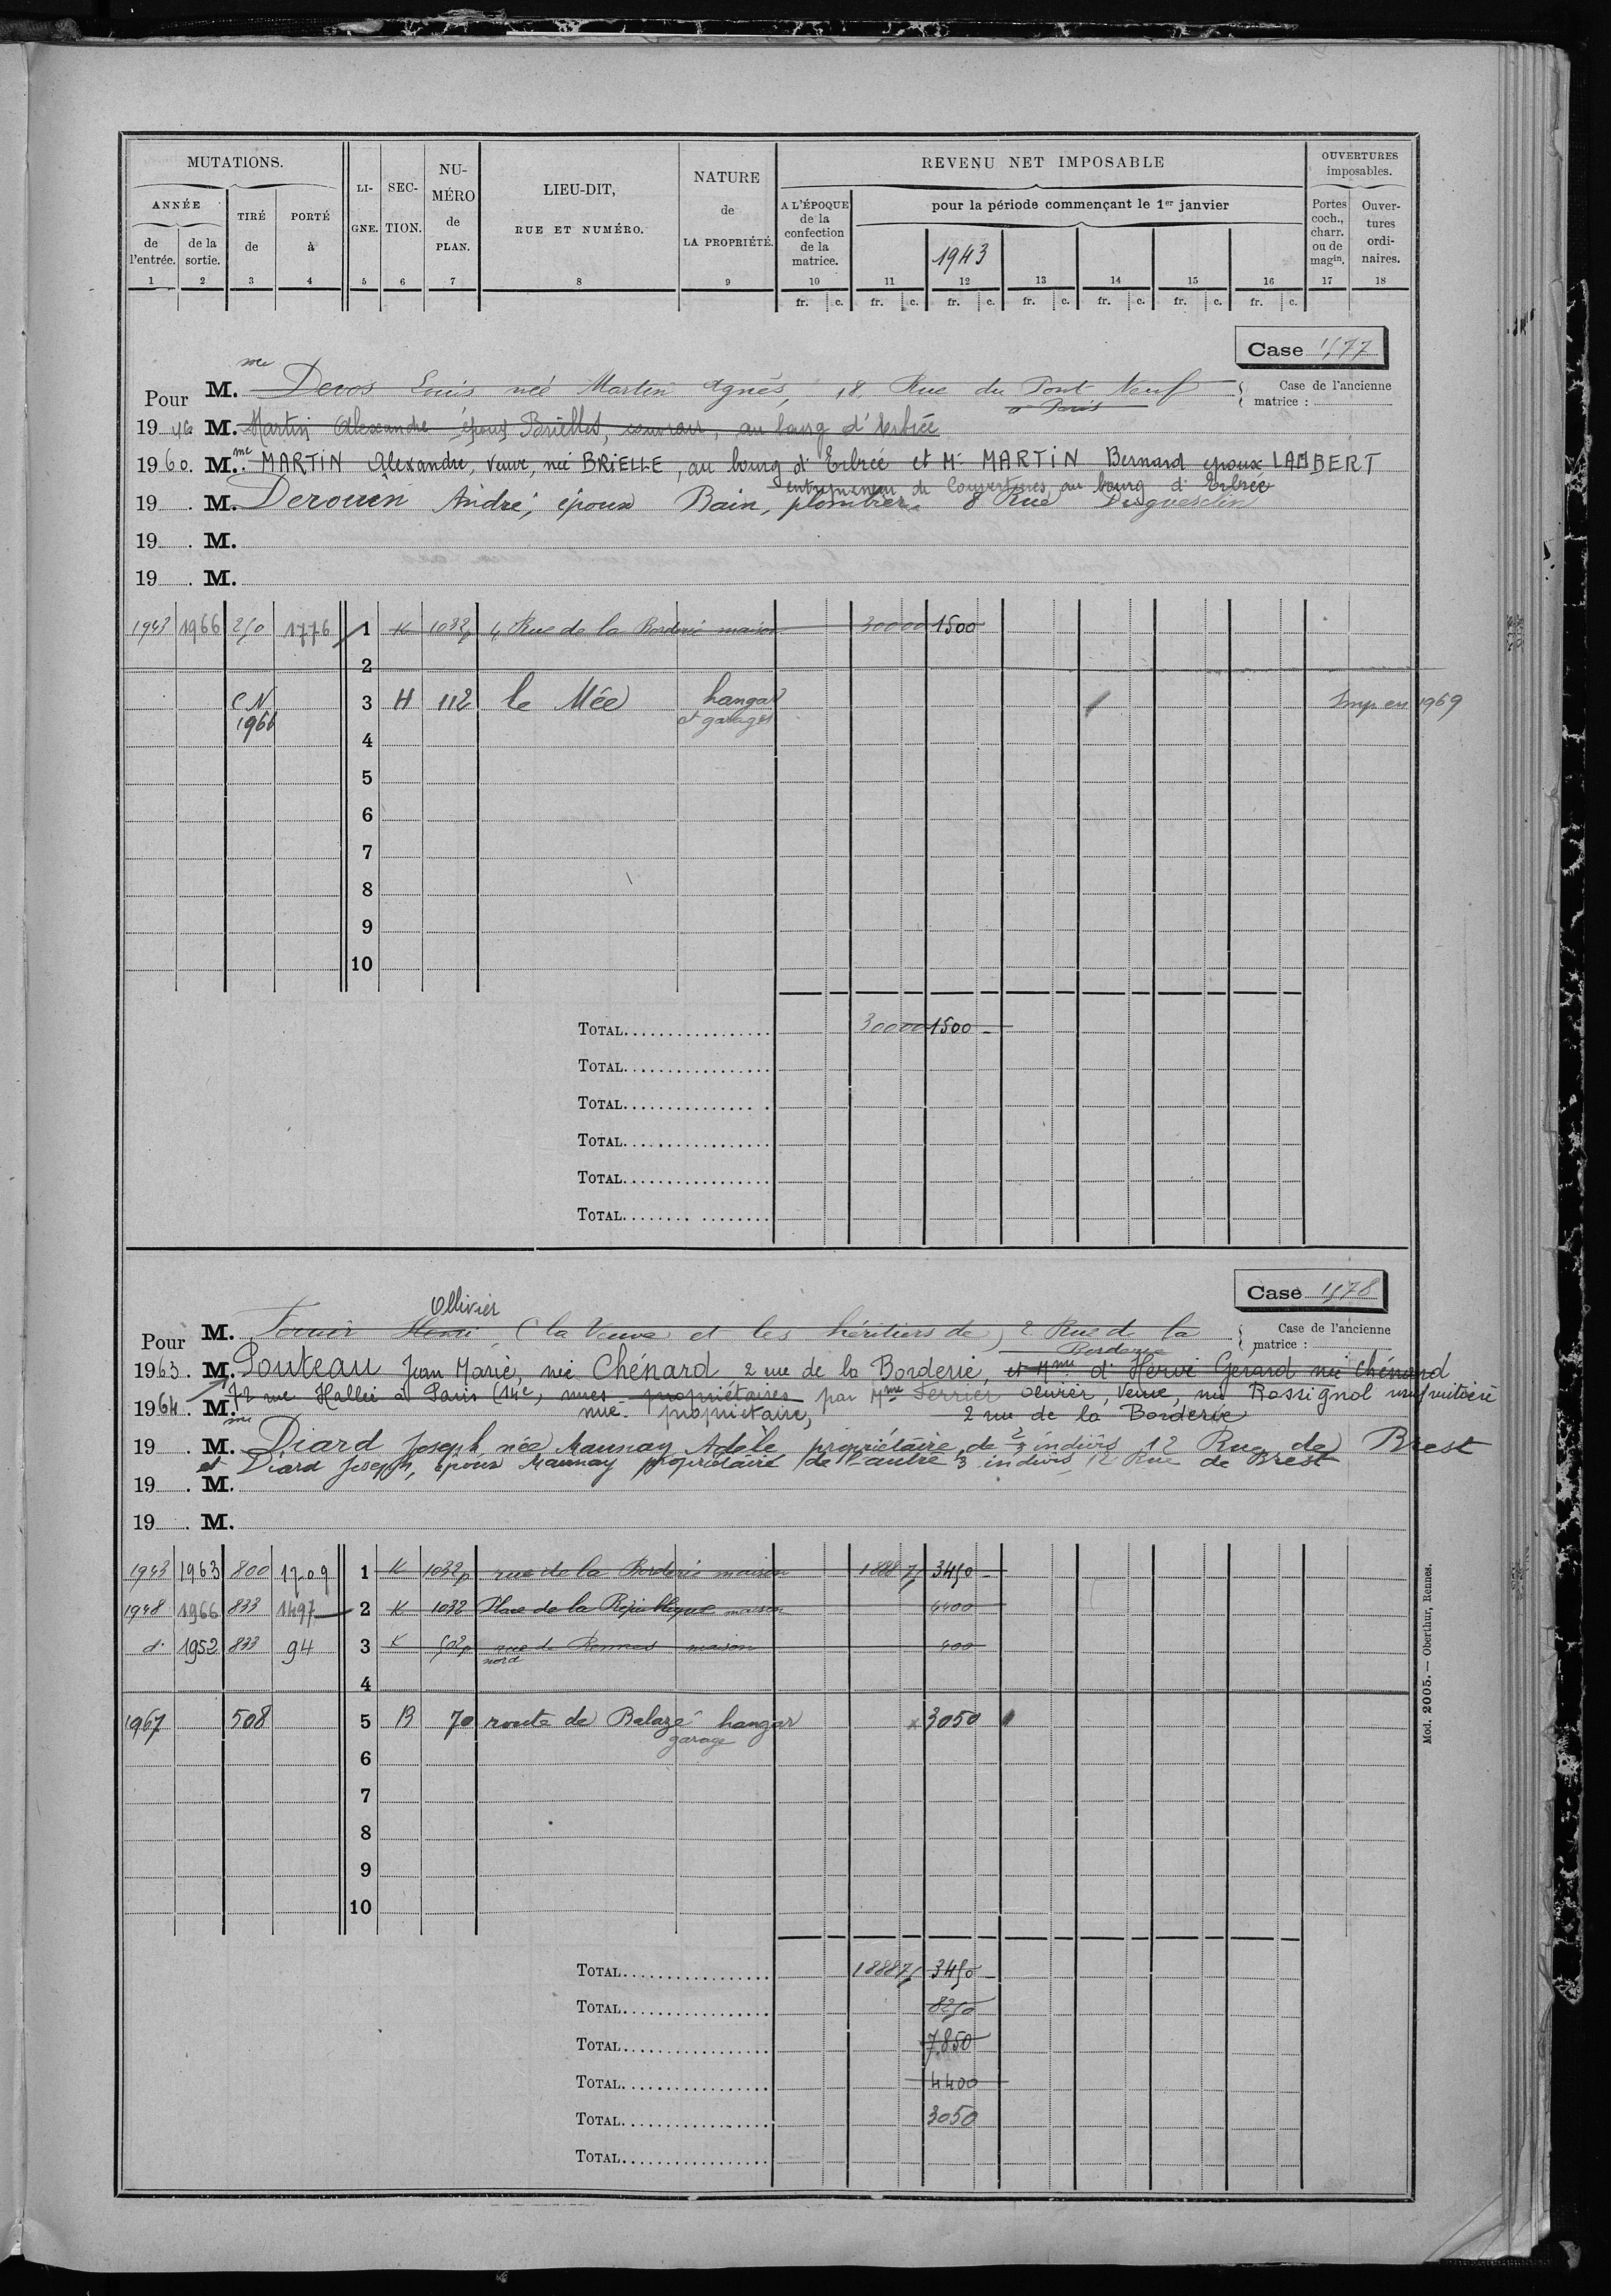 MUTATIONS.
ANNÉE
de l'entrée.
de la sortie.
TIRÉ de
PORTÉ à
LI-GNE.
SEC-TION.
NU-MÉRO de PLAN.
LIEU-DIT, RUE ET NUMÉRO.
NATURE de LA PROPRIÉTÉ.
REVENU NET IMPOSABLE
A L'ÉPOQUE de la confection de la matrice.
pour la période commençant le 1er janvier
1943
OUVERTURES imposables.
Portes coch., charr. ou de magin.
Ouver-tures ordi-naires.
1 2 3 4 5 6 7 8 9 10 11 12 13 14 15 16 17 18
fr. c. fr. c. fr. c. fr. c. fr. c. fr. c. fr. c.
Case 1577
Pour M.me Devos Louis née Martin Agnés, 18, Rue du Pont Neuf
à Paris
Case de l'ancienne matrice :
1946 M. Martin Alexandre époux Brielles, couvreur, au bourg d'Erbrée
1960. M.me MARTIN Alexandre, Veuve, née BRIELLE, au bourg d'Erbrée et Mr MARTIN Bernard époux LAMBERT
entrepreneur de Couvertures au bourg d'Erbrée
19 . M. Derouin André, époux Bain, plombier 8 Rue Duguesclin
19 . M.
19 . M.
1943 1966 250 1776 1 K 1032p 4 Rue de la Borderie maison 30000 1500
2
C N 1966 3 H 112 le Mée hangar et garages Imp en 1969
4
5
6
7
8
9
10
TOTAL 30000 1500
TOTAL
TOTAL
TOTAL
TOTAL
TOTAL
Case 1578
Ollivier
Pour M. Henri (la Veuve et les héritiers de) 2 Rue de la
Borderie
Case de l'ancienne matrice :
1963. M. Pouteau Jean Marie, née Chénard 2 rue de la Borderie, et Mme d'Hervé Gerard née Chénard
72 rue Hallée à Paris (14e, nues propriétaires par Mme Ferrier Olivier, Veuve, née Rossignol usufruitière
1964. M. nue propriétaire, 2 rue de la Borderie
19 . M.me Diard Joseph née Maunay Adèle propriétaire de 2/3 indivis 12 Rue de Brest
et Diard Joseph, époux Maunay propriétaire de l'autre 3 indivis 12 Rue de Brest
19 . M.
19 . M.
1943 1963 800 1709 1 K 1032p rue de la Borderie maison 18887 3450
1948 1966 833 1497 2 K 1032 Place de la République maison 4400
do 1952 833 94 3 K 502p rue de Rennes nord maison 400
4
1967 508 5 B 70 route de Balazé hangar garage x 3050
6
7
8
9
10
TOTAL 18887 3450
TOTAL 8250
TOTAL 7.850
TOTAL 4400
TOTAL 3050
TOTAL
Mod. 2005. — Oberthur, Rennes.